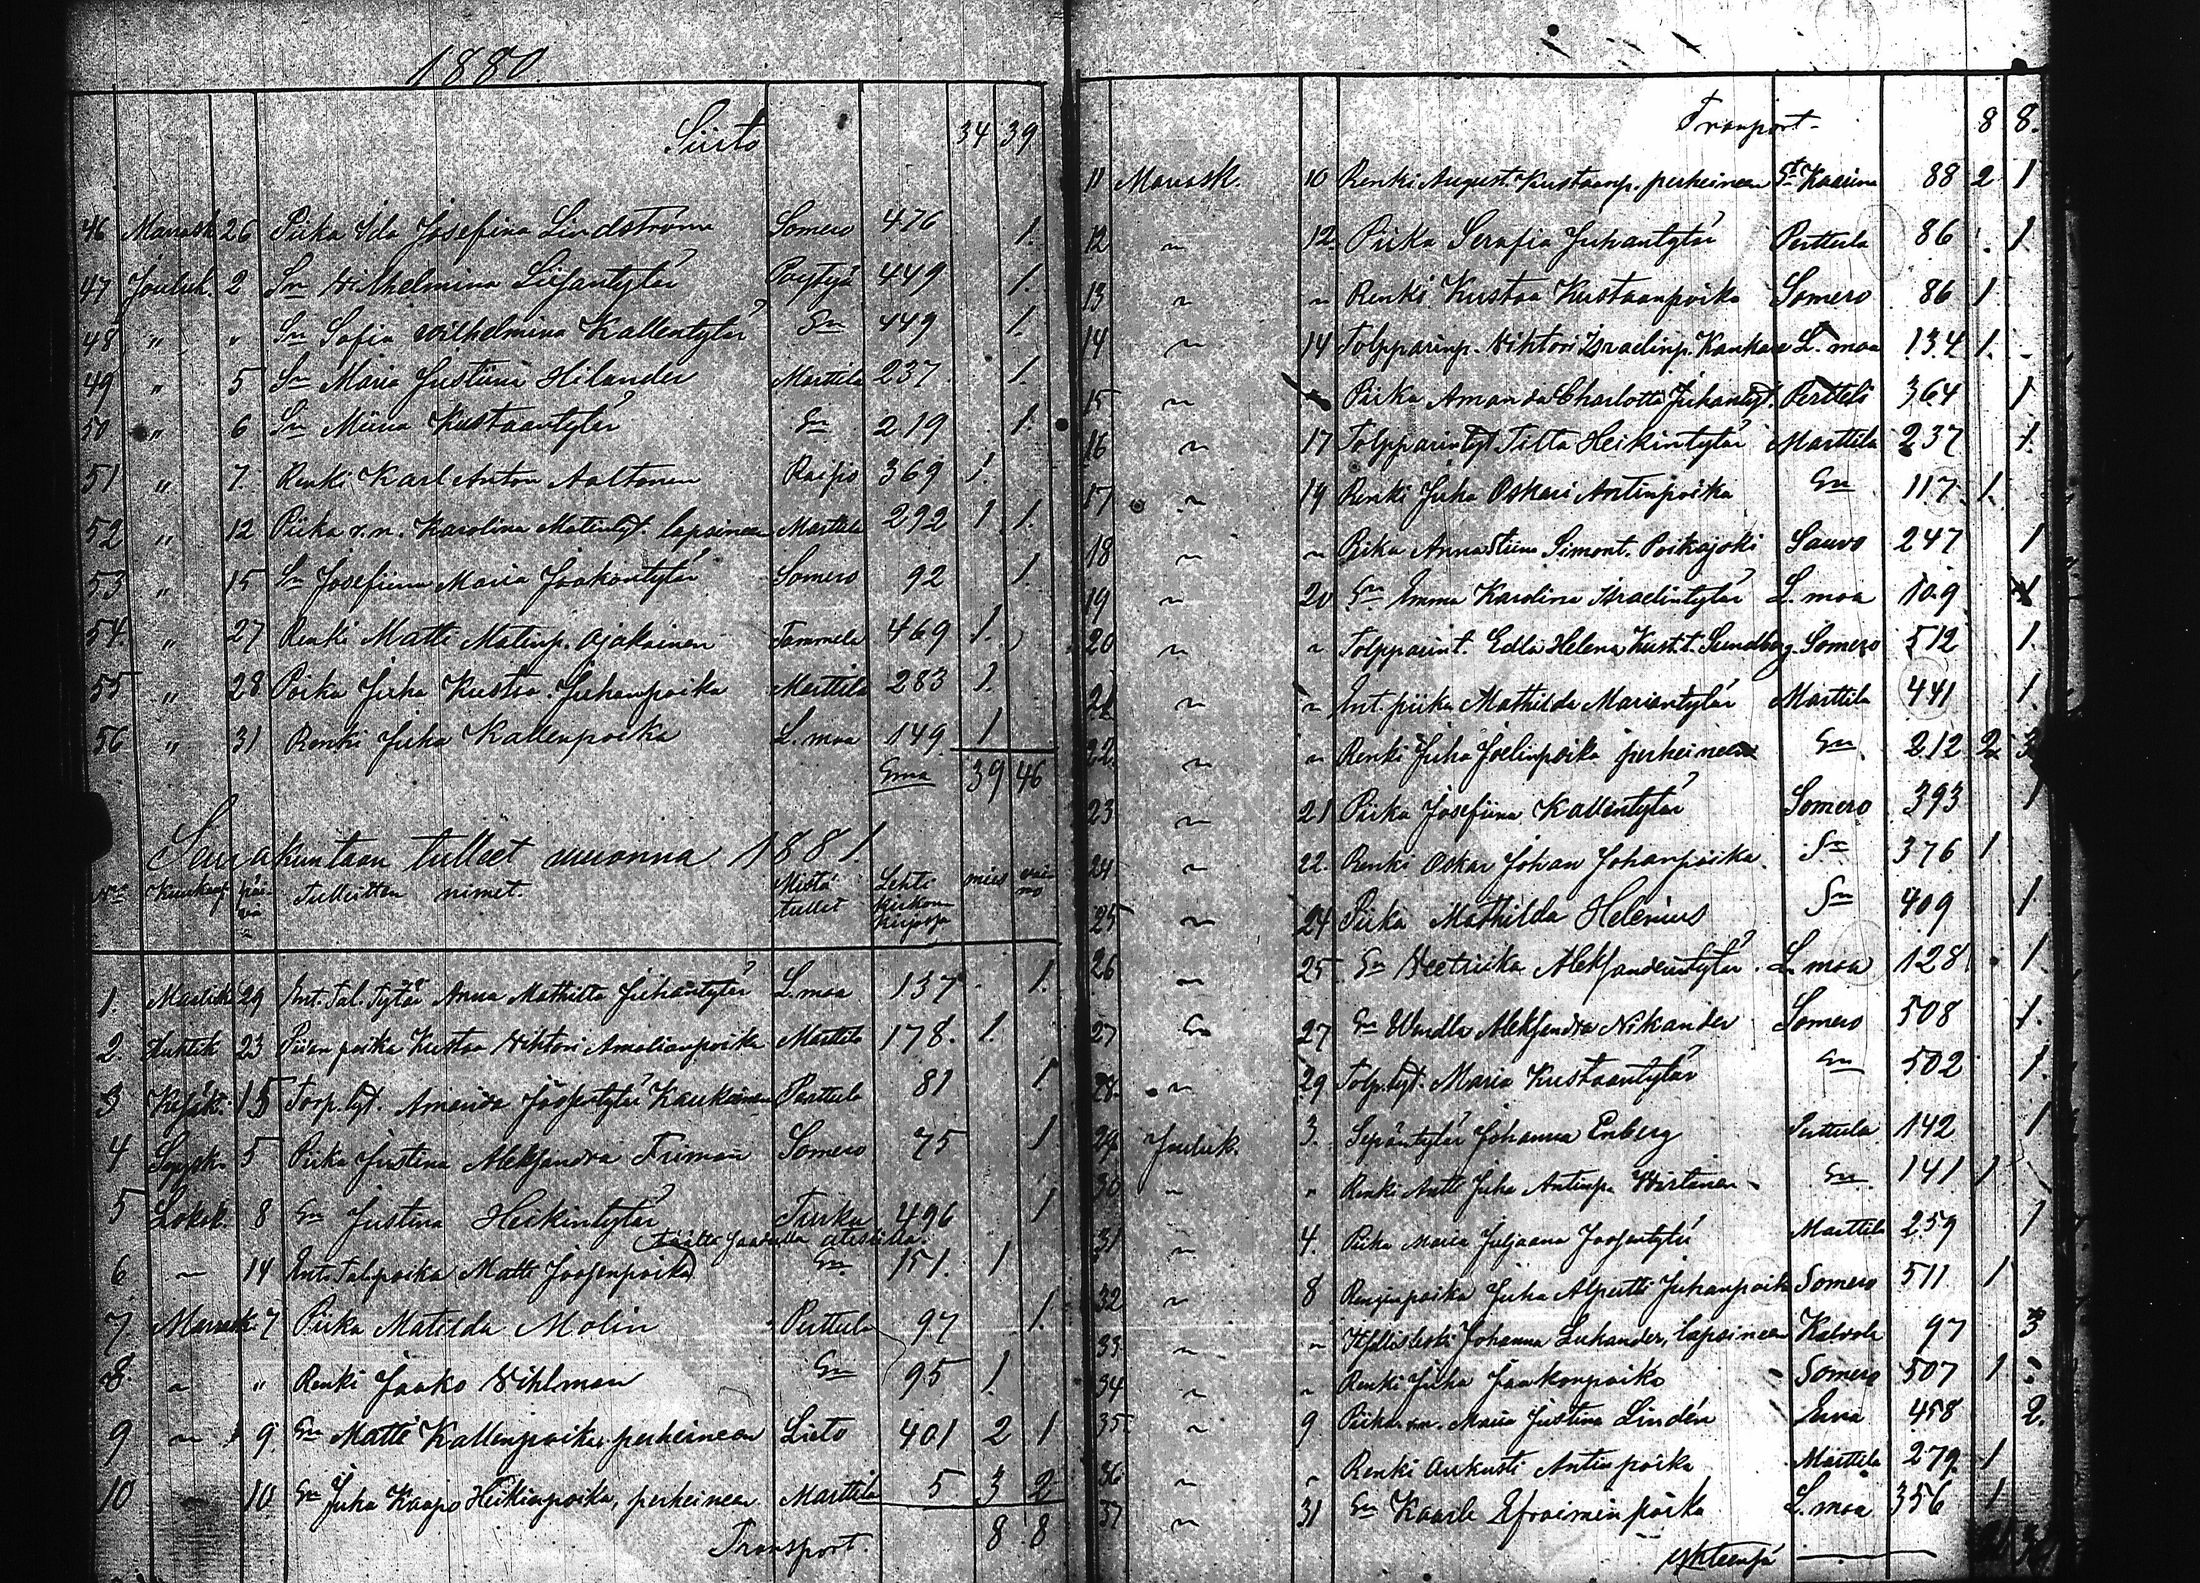 1880.
Siirto 34 39
46 Marrask. 26 Piika Ida Josefina Lindström Somero 476 1.
47 Jouluk. 2 Sn Wilhelmina Liisantytär Pöytyä 449 1.
48 " " Sn Sofia Wilhelmina Kallentytär Sn 449 1.
49 " 5 Sn Maria Justiina Hilander Marttila 237 1.
50 " 6 Sn Miina Kustaantytär Sn 219 1.
51 " 7 Renki Karl Anton Aaltonen 369 1.
52 " 12 Piika v.n. Karolina Matintyt. lapsineen Marttila 292 1 1.
53 " 15 Sn Josefiina Maria Jaakontytär Somero 92 1.
54. " 27 Renki Matti Matinp. Ojakainen Tammela 469 1.
55 " 28 Poika Juha Kustaa Juhanpoika Marttila 283 1.
56 " 31 Renki Juha Kallenpoika L.maa 149 1
Sma 39 46
Seurakuntaan tulleet vuonna 1881.
No Kuukausi päivä Tulleitten nimet. Mistä tullet Lehti kirkonkirjassa mies vaimo
1. Maalisk. 29 Ent. Tal. Tytär Anna Mathilta Juhantytär L.maa 137 1.
2. Huhtik 23 Piian poika Kustaa Wihtori Amalianpoika Marttila 178. 1.
3 Kesäk. 15 Torp. tyt. Amanda Joosentytär Kaukainen Perttula 81 1.
4 Syysk. 5 Piika Justina Aleksandra Friman Somero 75 1
5 Lokak. 8 Sn Justina Heikintytär Turku 496 1
6 ~ 14 Ent. Tal. poika Matti Joosenpoika Sn 151. 1
7 Marrask. 7 Piika Matilda Molin Perttula 97 1.
8. ~ " Renki Jaako Wihlman Sn 95 1.
9 ~ 9 Sn Matti Kallenpoika, perheineen Lieto 401 2 1
10 10 Sn Juha Kaapo Heikinpoika, perheineen Marttila 5 3 2
Transport. 8 8
Transport 8 8.
11 Marrask. 10 Renki August Kustaanp. perheineen St Kaarina 88 2 1
12 ~ 12. Piika Serafia Juhantytär Perttula 86 1
13 ~ ~ Renki Kustaa Kustaanpoika Somero 86 1
14 ~ 14 Tolpparinp. Wihtori Israelinp. Kankare L.maa 134 1.
15 ~ Piika Amanda Charlotta Juhantyt. Pertteli 364 1
16 ~ 17 Tolpparintyt. Titta Heikintytär Marttila 237 1.
17 ~ 19 Renki Juha Oskari Antinpoika Sn 117. 1.
18 ~ ~ Piika Anna Stiina Simont. Poikajoki Sauvo 247 1
19 ~ 20 Sn Emma Karolina Israelintytär L.maa 109 1
20 ~ ~ Tolpparint. Edla Helena Kust.t. Sundberg Somero 512 1.
21 ~ ~ Ent. piika Mathilda Mariantytär Marttila 441 1.
22. ~ ~ Renki Juha Joelinpoika perheineen Sn 212 2 3
23 ~ 21 Piika Josefiina Kallentytär Somero 393 1
24 ~ 22. Renki Oskar Johan Johanpoika. Sn 376 1
25 ~ 24 Piika Mathilda Helenius Sn 409 1.
26 ~ 25. Sn Weeruika Aleksanderintytär. L.maa 128 1.
27 Sn 27 Sn Wendla Aleksandra Nikander Somero 508 1.
28. ~ 29 Tolp. tyt. Maria Kustaantytär Sn 502 1.
29 Jouluk. 3. Sepäntytär Johanna Enberg Perttula 142 1
30 ~ " Renki Antti Juha Antinp. Wirtanen Sn 141 1
31 ~ 4. Piika Maria Juljaana Joosentytär Marttila 259 1
32 ~ 8 Renginpoika Juha Alpertti Juhanpoika Somero 511 1
33 ~ ~ Itsellisleski Johanna Lukander, lapsineen Kalvola 97 3
34 ~ ~ Renki Juha Jaakonpoika Somero 507 1
35 ~ 9 Piika v.n. Maria Justina Lindén 458 2.
36 ~ ~ Renki Aukusti Antinpoika Marttila 279 1
37 ~ 31 Sn Kaarle Efraiminpoika L.maa 356 1
Yhteensä